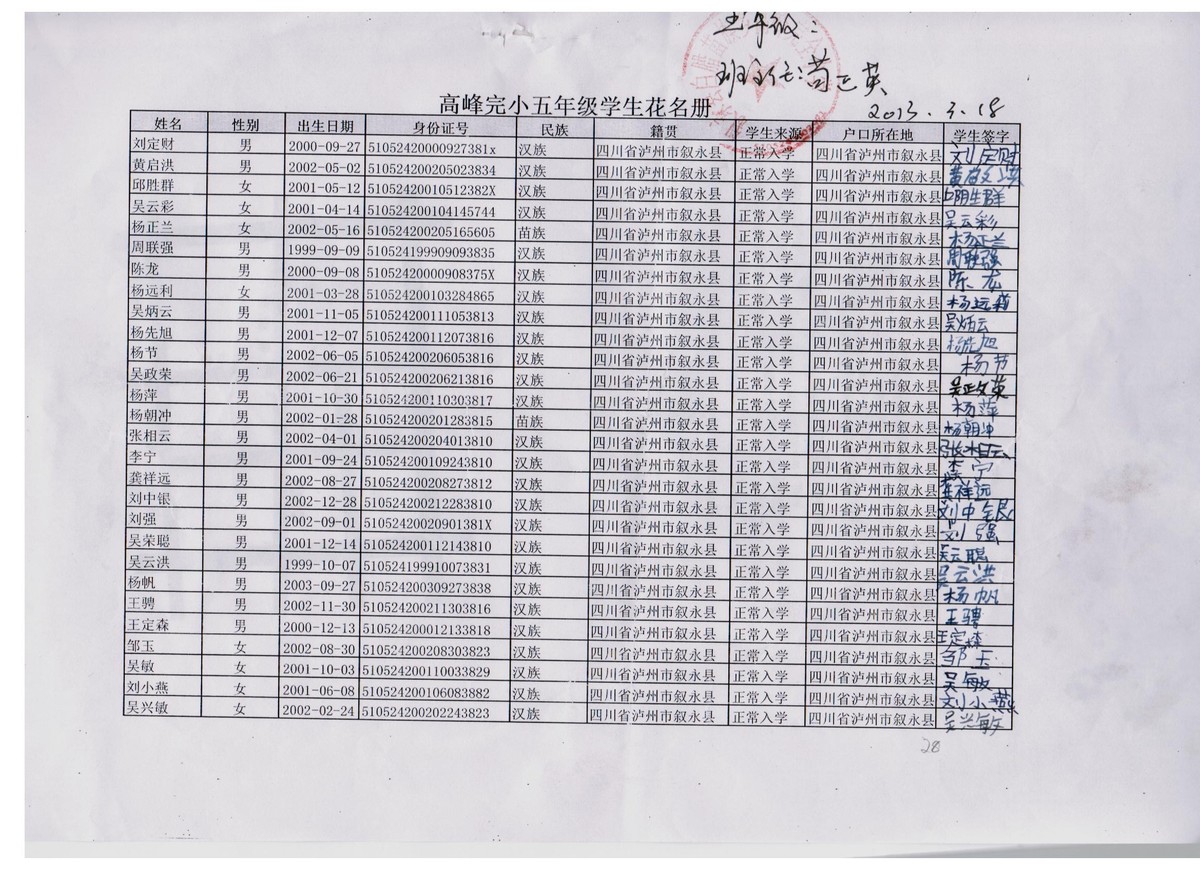 五年级:
班主任:苟之英
高峰完小五年级学生花名册
2013.3.18
姓名 性别 出生日期 身份证号 民族 籍贯 学生来源 户口所在地 学生签字
刘定财 男 2000-09-27 51052420000927381x 汉族 四川省泸州市叙永县 正常入学 四川省泸州市叙永县 刘定财
黄启洪 男 2002-05-02 510524200205023834 汉族 四川省泸州市叙永县 正常入学 四川省泸州市叙永县 黄启洪
邱胜群 女 2001-05-12 51052420010512382X 汉族 四川省泸州市叙永县 正常入学 四川省泸州市叙永县 邱胜群
吴云彩 女 2001-04-14 510524200104145744 汉族 四川省泸州市叙永县 正常入学 四川省泸州市叙永县 吴云彩
杨正兰 女 2002-05-16 510524200205165605 苗族 四川省泸州市叙永县 正常入学 四川省泸州市叙永县 杨正兰
周联强 男 1999-09-09 510524199909093835 汉族 四川省泸州市叙永县 正常入学 四川省泸州市叙永县 周联强
陈龙 男 2000-09-08 51052420000908375X 汉族 四川省泸州市叙永县 正常入学 四川省泸州市叙永县 陈龙
杨远利 女 2001-03-28 510524200103284865 汉族 四川省泸州市叙永县 正常入学 四川省泸州市叙永县 杨远
吴炳云 男 2001-11-05 510524200111053813 汉族 四川省泸州市叙永县 正常入学 四川省泸州市叙永县 吴炳云
杨先旭 男 2001-12-07 510524200112073816 汉族 四川省泸州市叙永县 正常入学 四川省泸州市叙永县 杨先旭
杨节 男 2002-06-05 510524200206053816 汉族 四川省泸州市叙永县 正常入学 四川省泸州市叙永县 杨节
吴政荣 男 2002-06-21 510524200206213816 汉族 四川省泸州市叙永县 正常入学 四川省泸州市叙永县 吴政
杨萍 男 2001-10-30 510524200110303817 汉族 四川省泸州市叙永县 正常入学 四川省泸州市叙永县 杨萍
杨朝冲 男 2002-01-28 510524200201283815 苗族 四川省泸州市叙永县 正常入学 四川省泸州市叙永县 杨朝冲
张相云 男 2002-04-01 510524200204013810 汉族 四川省泸州市叙永县 正常入学 四川省泸州市叙永县 张相云
李宁 男 2001-09-24 510524200109243810 汉族 四川省泸州市叙永县 正常入学 四川省泸州市叙永县 李宁
龚祥远 男 2002-08-27 510524200208273812 汉族 四川省泸州市叙永县 正常入学 四川省泸州市叙永县 龚祥远
刘中银 男 2002-12-28 510524200212283810 汉族 四川省泸州市叙永县 正常入学 四川省泸州市叙永县 刘中银
刘强 男 2002-09-01 51052420020901381X 汉族 四川省泸州市叙永县 正常入学 四川省泸州市叙永县 刘强
吴荣聪 男 2001-12-14 510524200112143810 汉族 四川省泸州市叙永县 正常入学 四川省泸州市叙永县 吴云聪
吴云洪 男 1999-10-07 510524199910073831 汉族 四川省泸州市叙永县 正常入学 四川省泸州市叙永县 吴云洪
杨帆 男 2003-09-27 510524200309273838 汉族 四川省泸州市叙永县 正常入学 四川省泸州市叙永县 杨帆
王骋 男 2002-11-30 510524200211303816 汉族 四川省泸州市叙永县 正常入学 四川省泸州市叙永县 王骋
王定森 男 2000-12-13 510524200012133818 汉族 四川省泸州市叙永县 正常入学 四川省泸州市叙永县 王定森
邹玉 女 2002-08-30 510524200208303823 汉族 四川省泸州市叙永县 正常入学 四川省泸州市叙永县 邹玉
吴敏 女 2001-10-03 510524200110033829 汉族 四川省泸州市叙永县 正常入学 四川省泸州市叙永县 吴敏
刘小燕 女 2001-06-08 510524200106083882 汉族 四川省泸州市叙永县 正常入学 四川省泸州市叙永县 刘小燕
吴兴敏 女 2002-02-24 510524200202243823 汉族 四川省泸州市叙永县 正常入学 四川省泸州市叙永县 吴兴敏
28